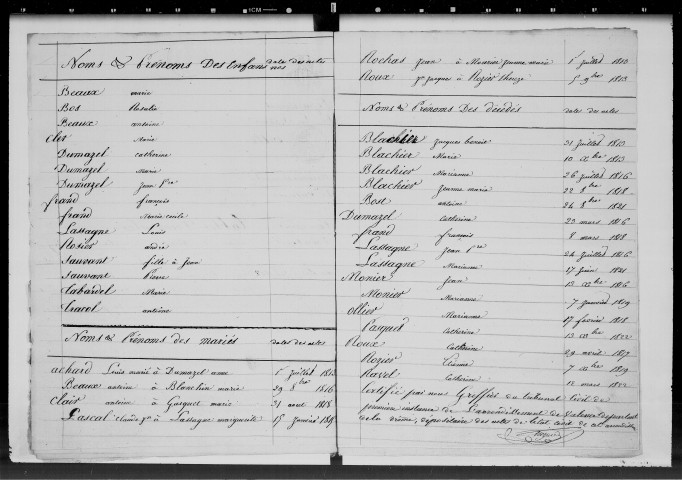 Noms & Prénoms Des enfans dates des actes
Beaux marie
Bos Rosalie
Beaux antoine
Clet Marie
Dumazel catherine
Dumazel Marie
Dumazel Jean Pre
frand françois
frand Marie
Lassagne Louis
Rosier andré
Sauvant fille à Jean
Sauvant Pierre
Tabardel Marie
Tracol antoine
Noms & Prénoms des mariés dates des actes
achard Louis marié à Dumazel anne 1er Juillet 1813
Beaux antoine à Blanchin marie 29 8bre 1816
Clair antoine à Gasquet marie 21 aout 1818
Pascal Claude à Lassagne marguerite 15 Janvier 1818
Rochas Jean à Mourier Jeanne marie 1er Juillet 1813
Roux Pre Jacques à Rozier 5 9bre 1813
Noms & Prénoms Des décédés dates des actes
Blachier Jacques benoit 31 Juillet 1810
Blachier Marie 10 Xbre 1813
Blachier Marianne 26 Juillet 1816
Blachier Jeanne marie 22 8bre 1818
Bost antoine 24 8bre 1821
Dumazel Catherine 20 mars 1816
frand françois 8 mars 1818
Lassagne Jean Pre 24 Juillet 1816
Lassagne Marianne 17 Juin 1821
Monier Jean 13 Xbre 1816
Monier Marianne 7 Janvier 1819
ollier Marianne 17 fevrier 1818
Paquet Catherine 13 Xbre 1822
Roux Catherine 29 avril 1817
Rozier Etienne 7 Xbre 1819
Ravel Catherine 13 mars 1822
Certifié par nous Greffier du tribunal Civil de
première instance de l'arrondissement de Valence département
de la drôme, dépositaire des actes de l'état civil de cet arrondt